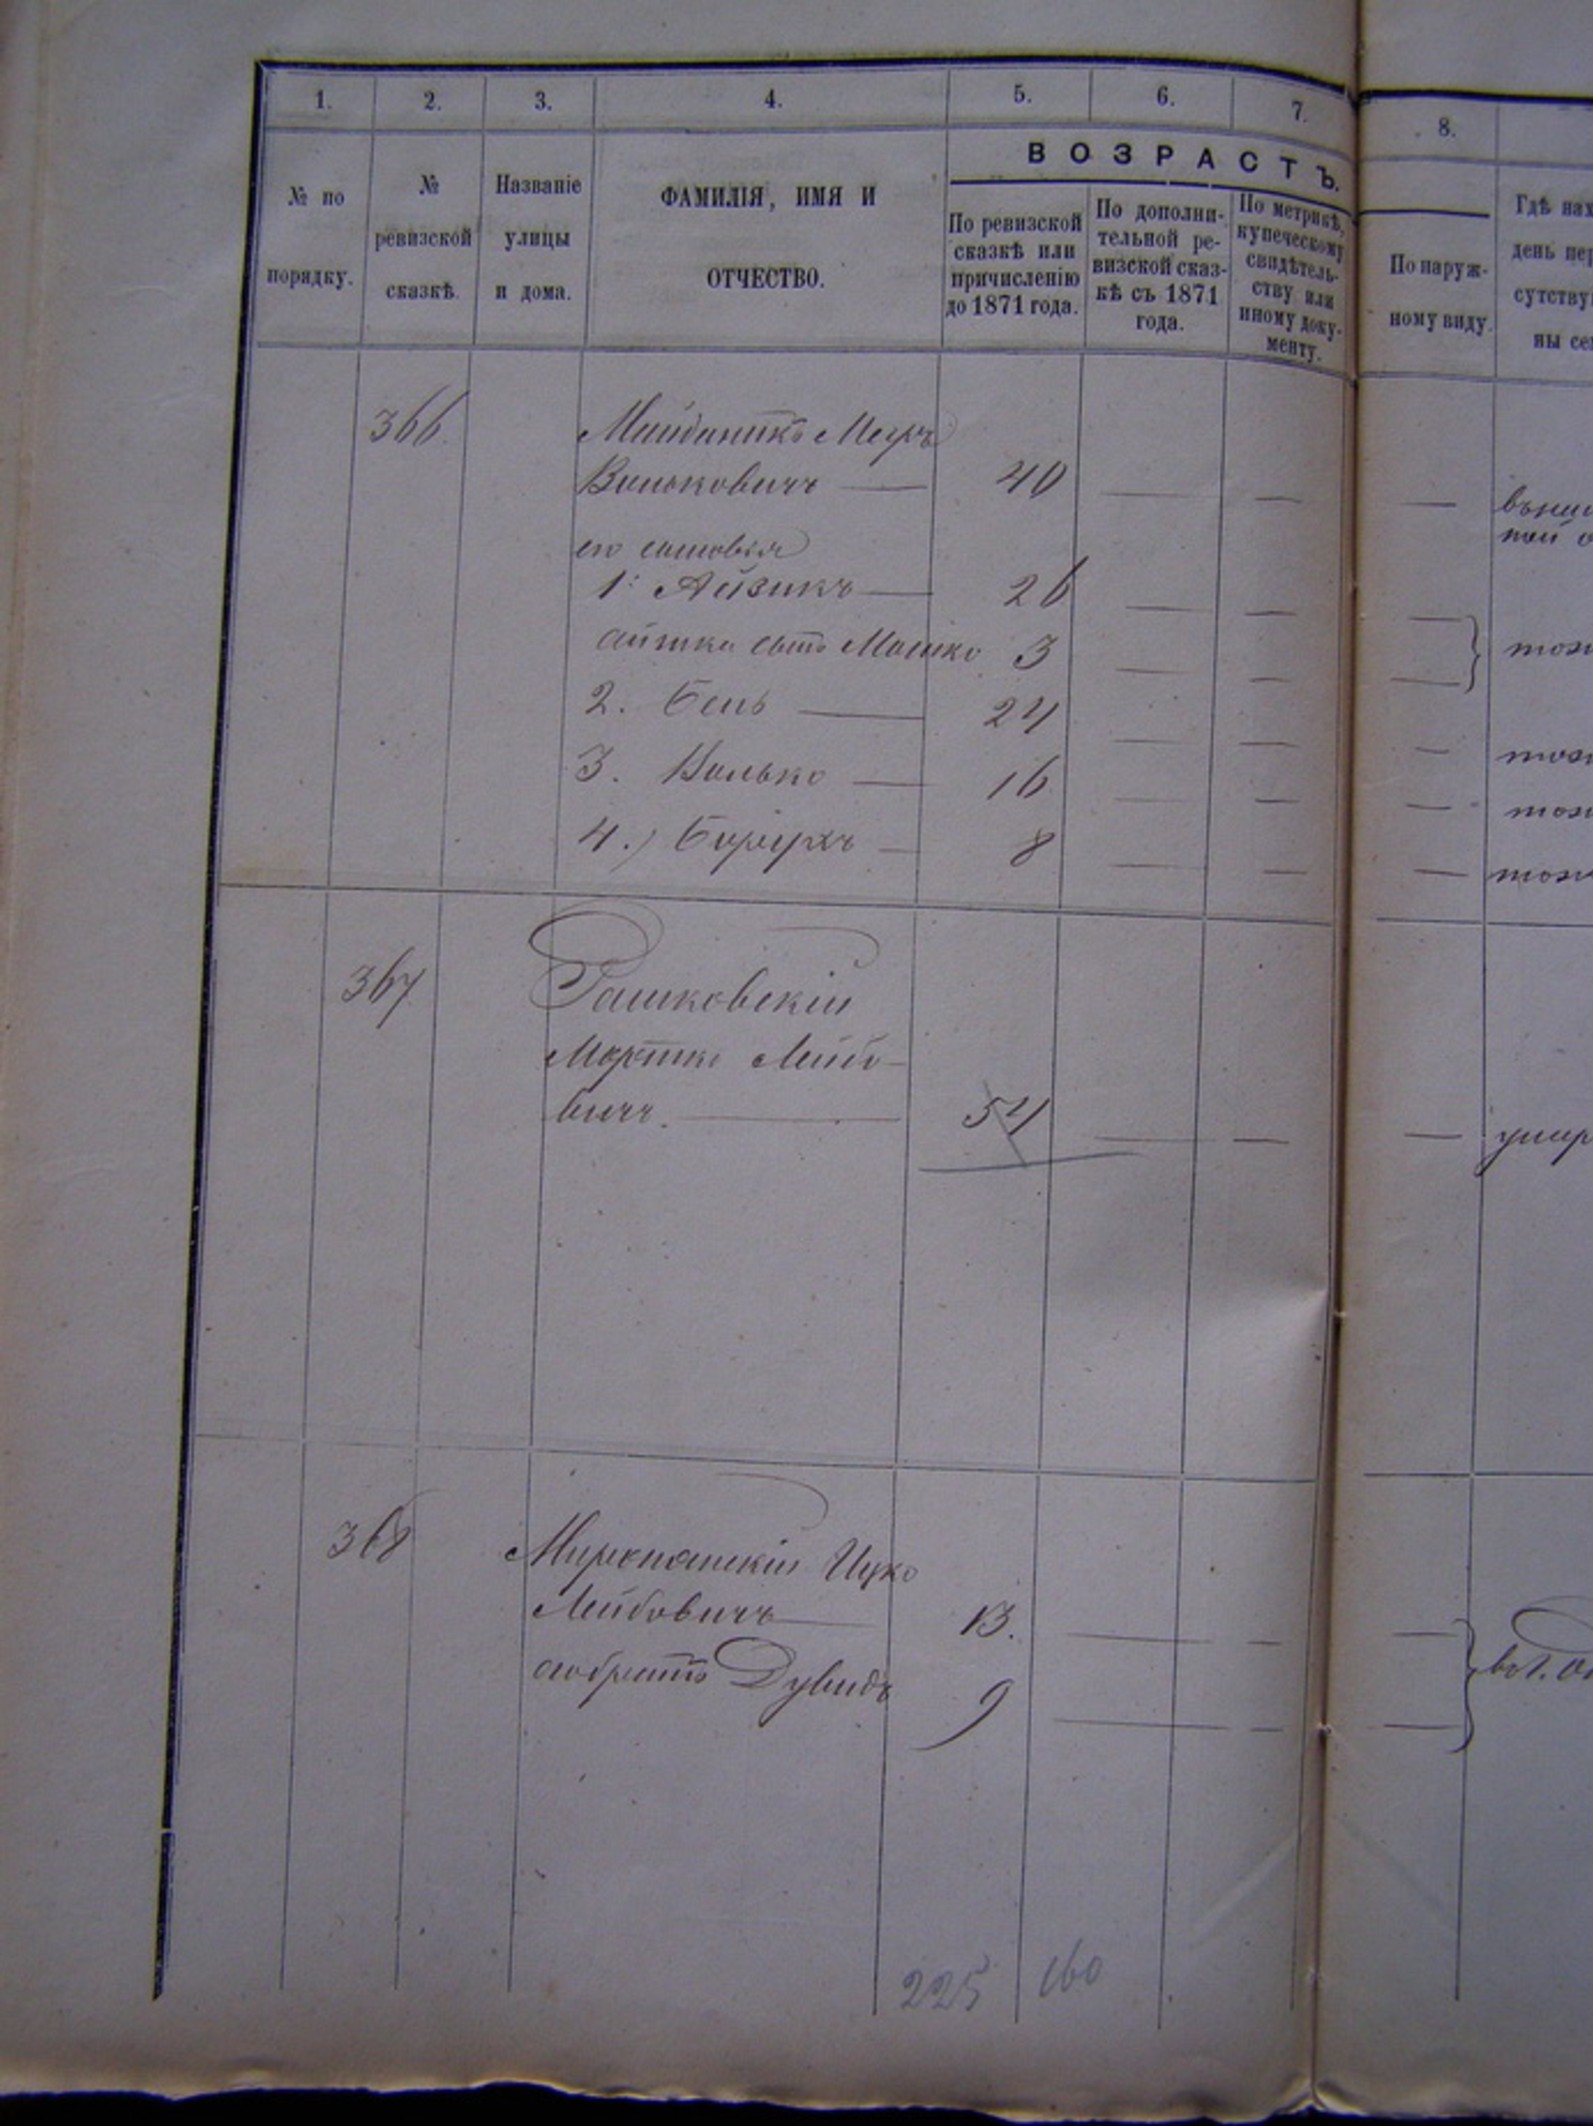 1. 2. 3. 4. 5. 6. 7. 8.
ВОЗРАСТЪ.
№ по
порядку.
№
ревизской
сказкѣ.
Названіе
улицы
и дома.
ФАМИЛІЯ, ИМЯ И
ОТЧЕСТВО.
По ревизской
сказкѣ или
причисленію
до 1871 года.
По дополни-
тельной ре-
визской сказ-
кѣ съ 1871
года.
По метрикѣ,
купеческому
свидѣтель-
ству или
иному доку-
менту.
По наруж-
ному виду.
Гдѣ нах
день пер
сутству
ны се
366 Майданикъ Меръ
Вольковичъ 40
его сыновья
1. Айзикъ 26
сынъ Мошко 3
2. Бень 24
3. Волько 16
4.) Борухъ 8
367 Рашковскій
Мортко Лейбо-
вичъ. 54 умер
368 Миропольскій Ицко
Лейбовичъ 13.
его братъ Дувидъ 9
225